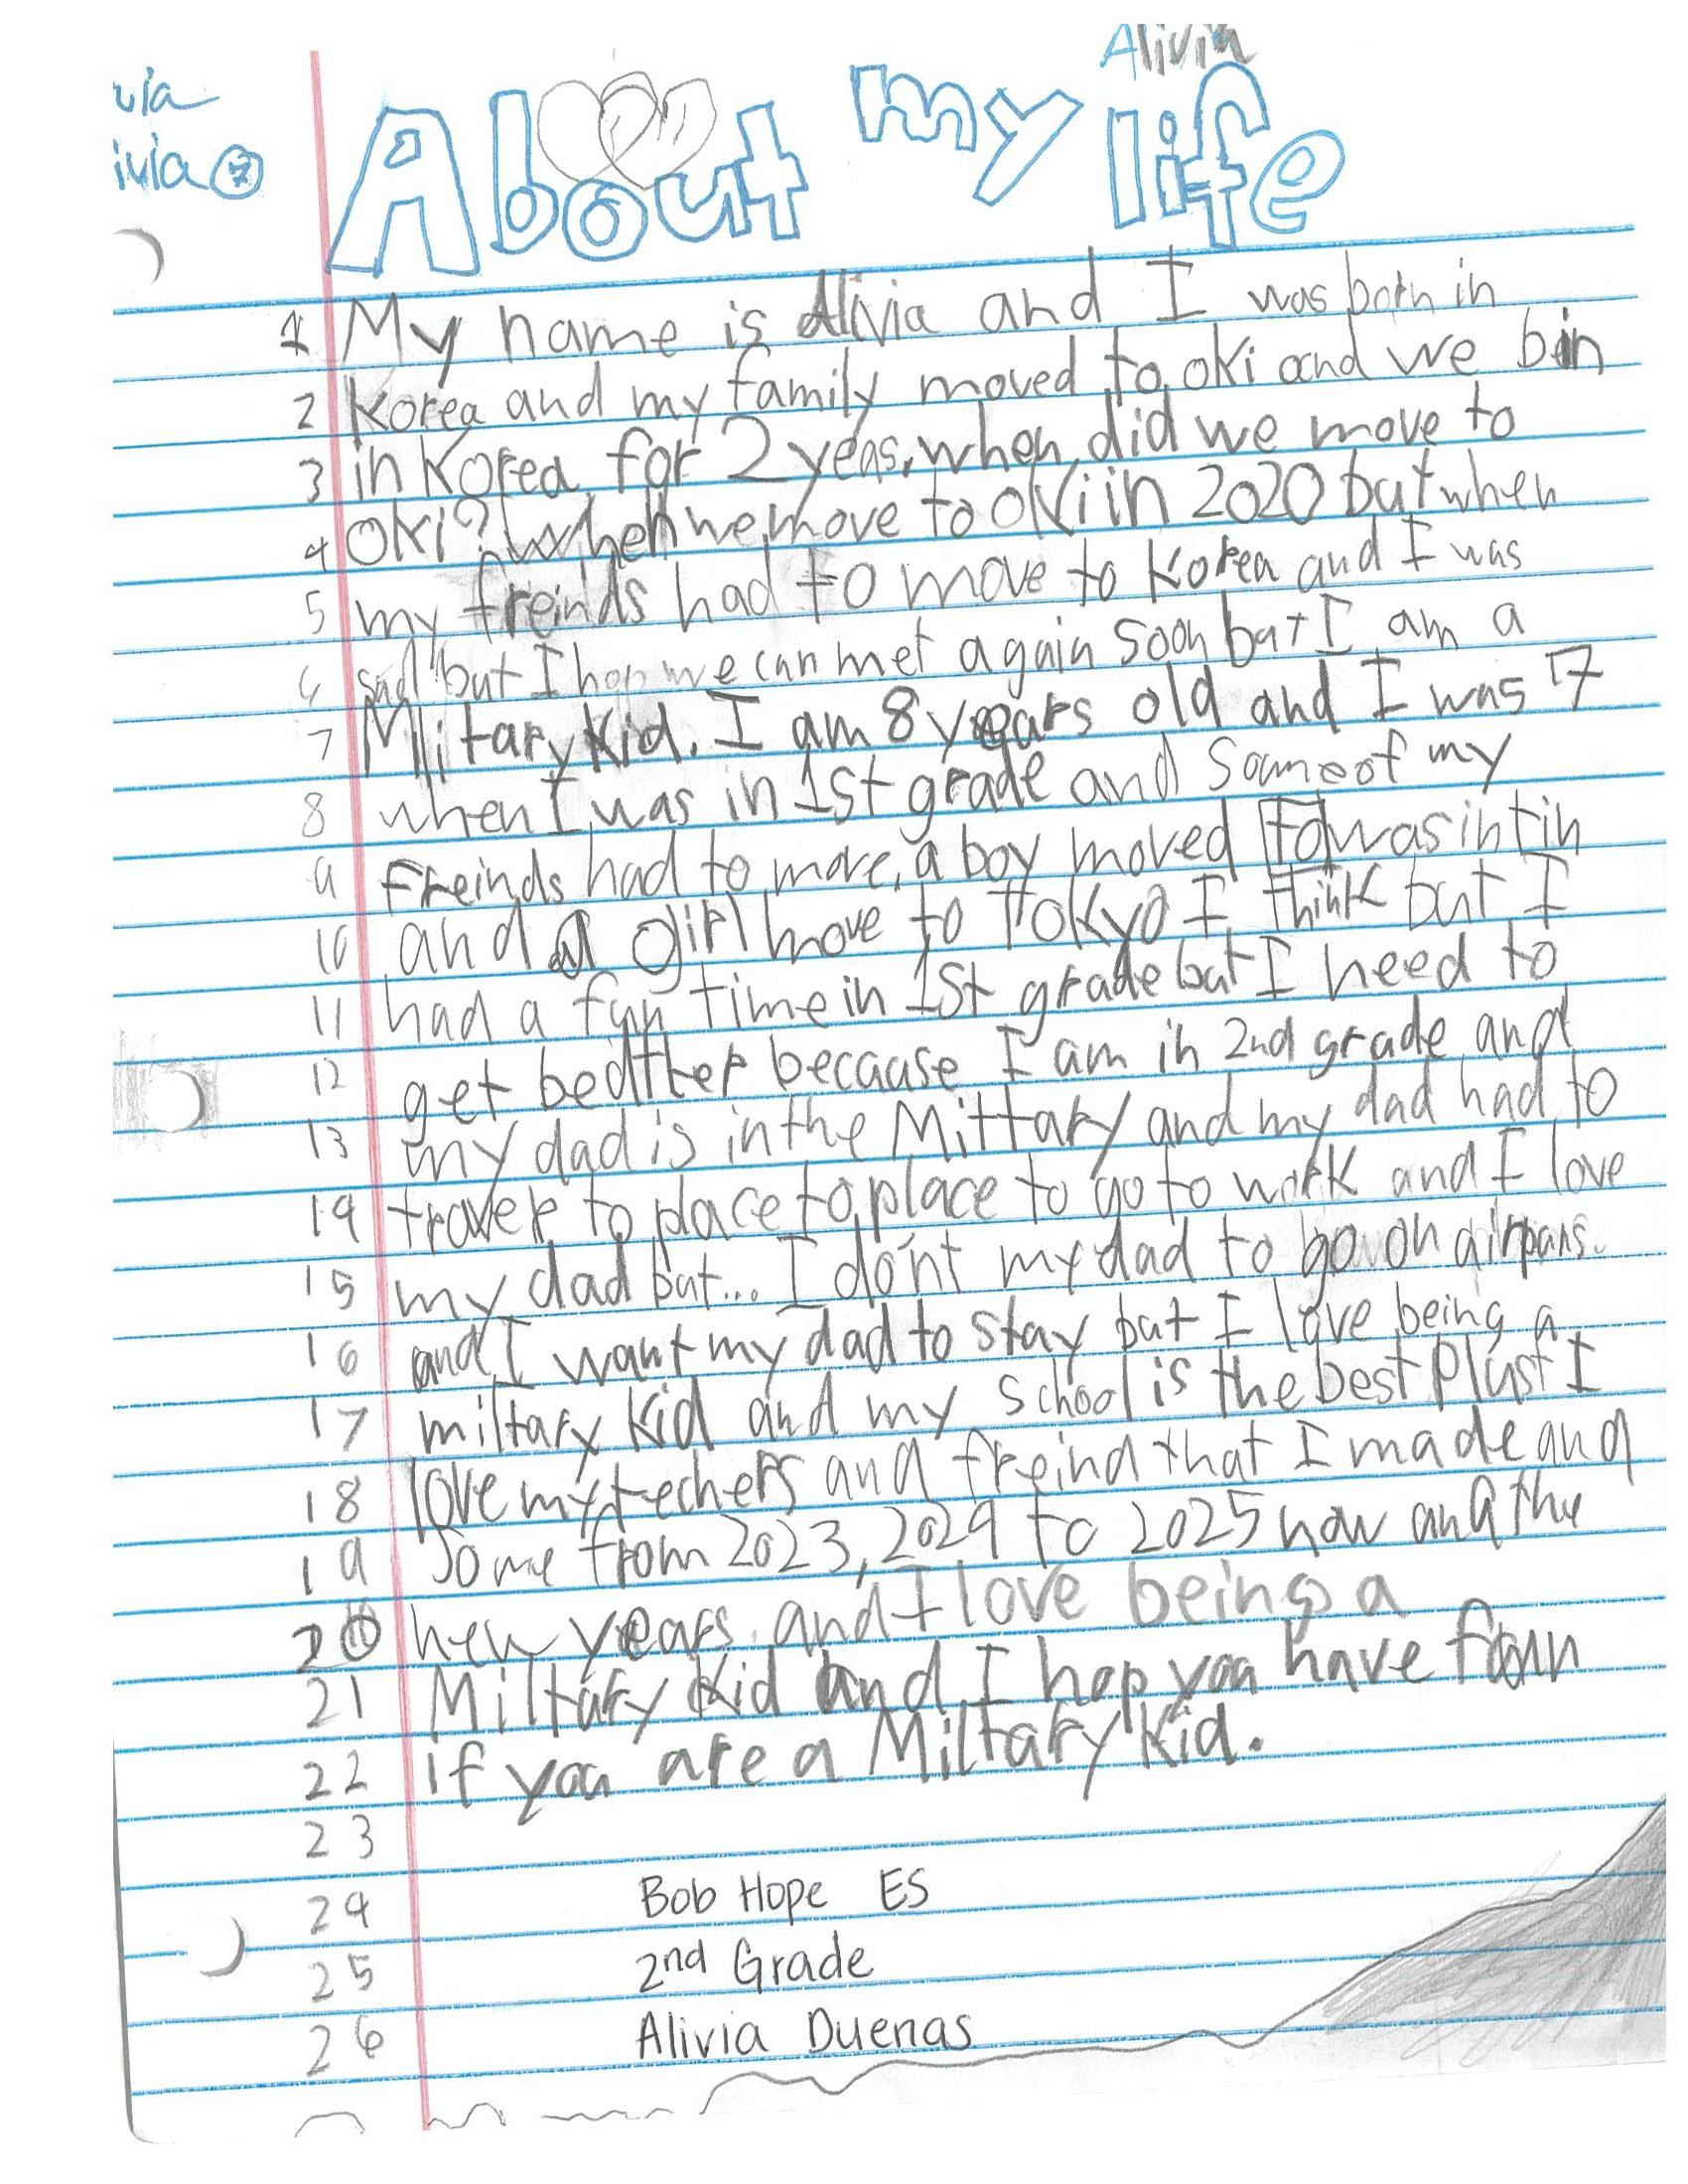 Alivia
via
ivia
About my life
1 My name is Alivia and I was born in
2 Korea and my family moved to oki and we bin
3 in Korea for 2 yeas. when did we move to
4 oki? when we move to oki in 2020 but when
5 my freinds had to move to Korea and I was
6 sad but I hop we can met again soon but I am a
7 Military Kid. I am 8 years old and I was 7
8 when I was in 1st grade and some of my
9 freinds had to move, a boy moved to wasintin
10 and a girl move to Tokyo I think but I
11 had a fun time in 1st grade but I need to
12 get bedtter because I am in 2nd grade and
13 my dad is in the Mittary and my dad had to
14 traver to place to place to go to work and I love
15 my dad but... I don't my dad to go on airpans.
16 and I want my dad to stay but I love being a
17 miltary Kid and my school is the best plust I
18 love my techers and freind that I made and
19 some from 2023, 2024 to 2025 now and the
20 new years and I love being a
21 Miltary Kid and I hop you have faun
22 if you are a Miltary Kid.
23
24 Bob Hope ES
25 2nd Grade
26 Alivia Duenas